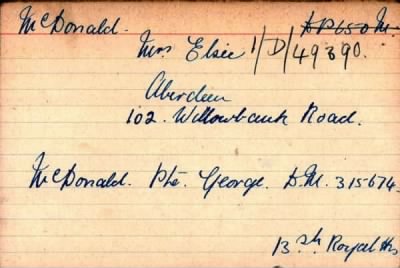 McDonald. DP650M.
Mrs Elsie 1/D/49390.
Aberdeen
102. Willowbank Road.
McDonald. Pte. George. D.M. 315674.
13th Royal Hrs